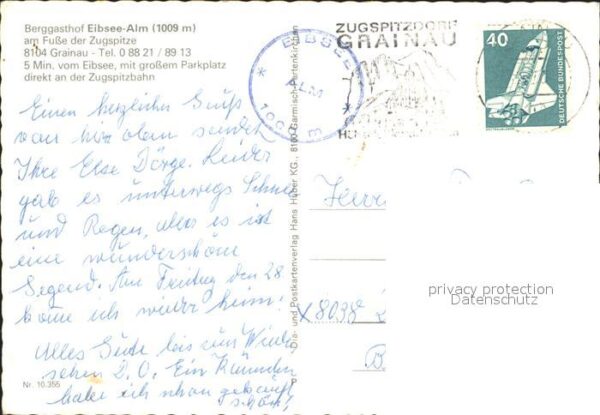 Berggasthof Eibsee-Alm (1009 m)
am Fuße der Zugspitze
8104 Grainau - Tel. 0 88 21 / 89 13
5 Min. vom Eibsee, mit großem Parkplatz
direkt an der Zugspitzbahn
Einen herzlichen Gruß
von hier oben sendet
Ihre Else Dörge. Leider
gab es unterwegs Schnee
und Regen, aber es ist
eine wunderschöne
Gegend. Am Freitag den 28.
komme ich wieder heim!
Alles Gute bis zum Wieder
sehen D.O. Ein
habe ich schon gekauft
schön!
Nr. 10.355
EIBSEE
ALM
1009 m
ZUGSPITZDORF
GRAINAU
40
DEUTSCHE BUNDESPOST
Dia- und Postkartenverlag Hans Huber KG., 8100 Garmisch-Partenkirchen
Herrn
8038
privacy protection
Datenschutz